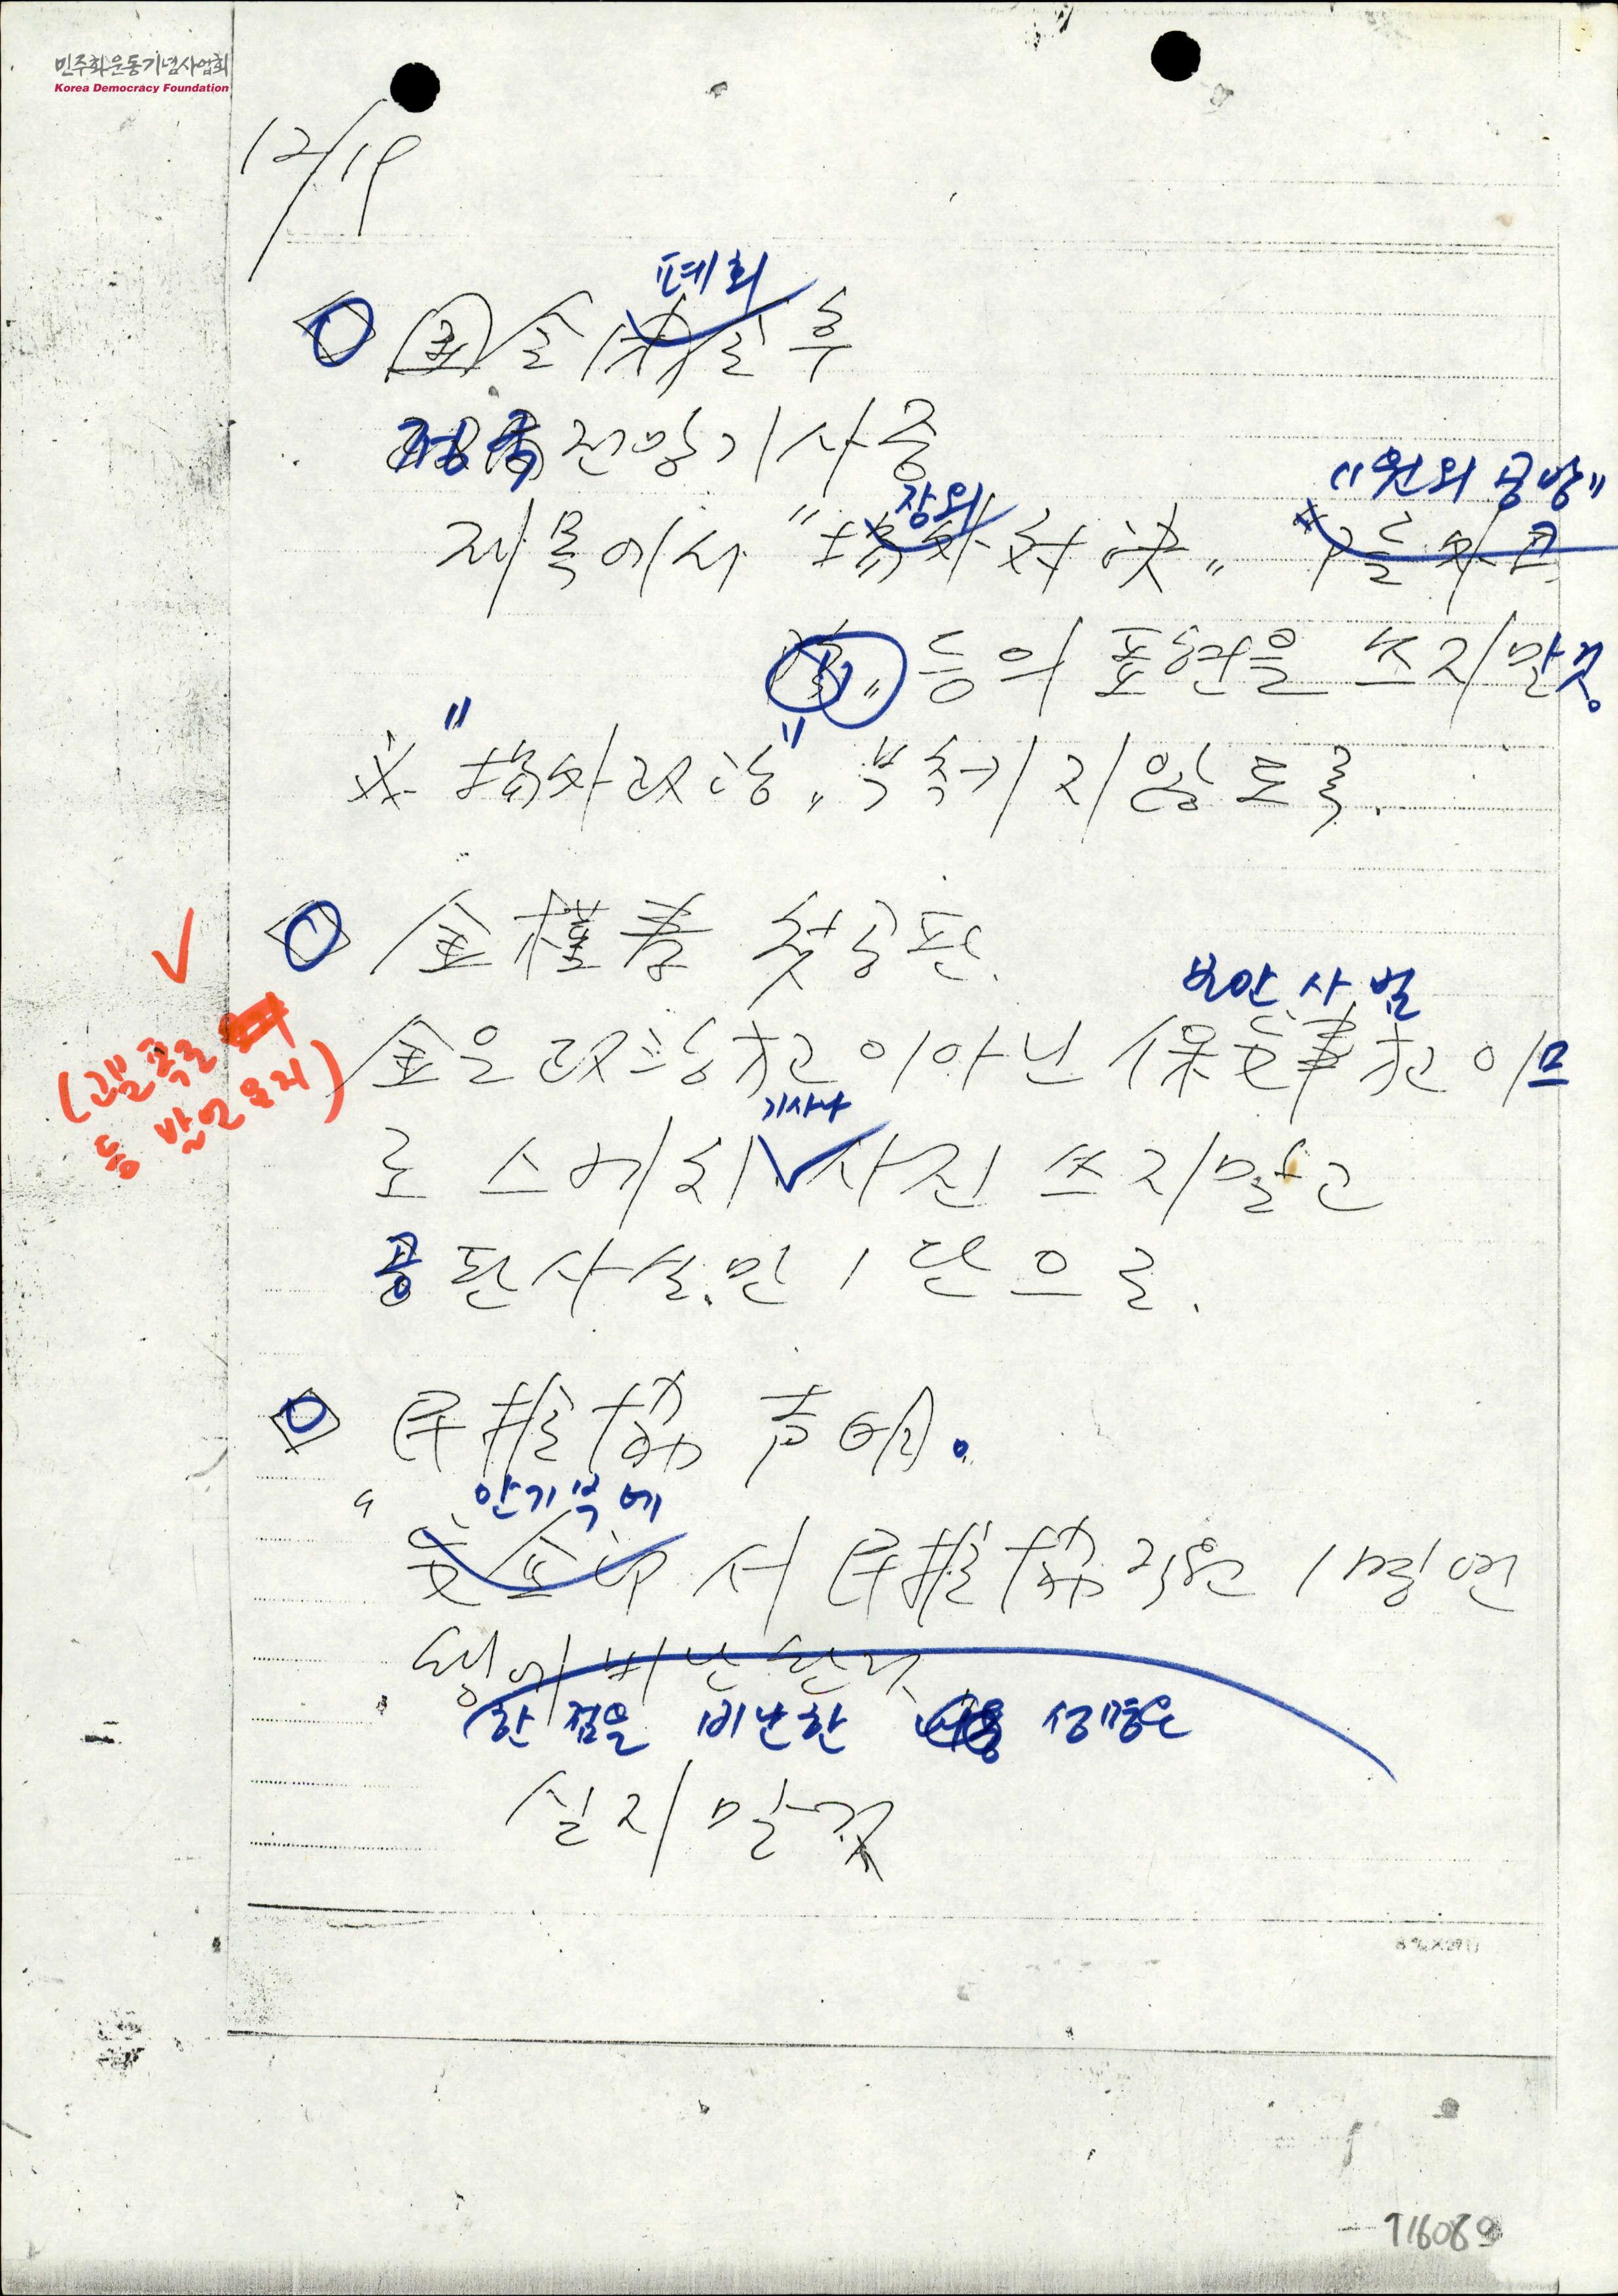 민주화운동기념사업회
Korea Democracy Foundation
12/19
폐회
국회 후
정국 전망기사중
장외 "원외 공방"
제목에서 "場外対決"
등의 표현을 쓰지 말것
※ "場外政治" 부추기지 않도록.
金槿泰 첫공판.
보안사범
金은 政治犯이 아닌 保安事犯이므
기사나
로 스케치 사진 쓰지말고
공판사실만 1단으로.
등 발언요지)
民推協 声明.
안기부에
"安企部서 民推協 직원 1명 연
행에 비난한다
한 점을 비난한 성명은
싣지 말것
716069